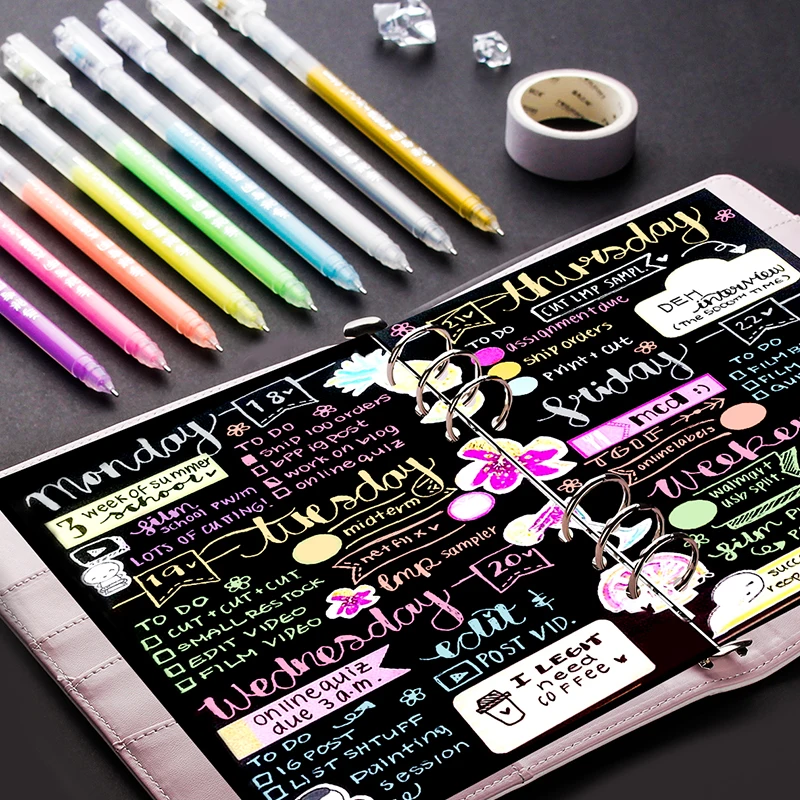 monday
18
3 week of summer
school
TO DO
SHIP 100 ORDERS
BPP IG POST
work on blog
online quiz
film
SCHOOL PW/M
LOTS OF CUTTING!
tuesday
19
midterm
netflix
lmp sampler
TO DO
CUT + CUT + CUT
SMALL RESTOCK
EDIT VIDEO
FILM VIDEO
wednesday
20
online quiz
due 3 a.m.
edit &
POST VID.
TO DO
IG POST
LIST SHTUFF
painting
session
I LEGIT
need
COFFEE
thursday
21
CUT LMP SAMPL
TO DO
assignment due
ship orders
print + cut
DEM
interview
(THE 5000TH TIME)
friday
22
mcd :)
TGIF
onlinelabels
TO DO
FILM
FILM
weeke
walmart
usb split
film